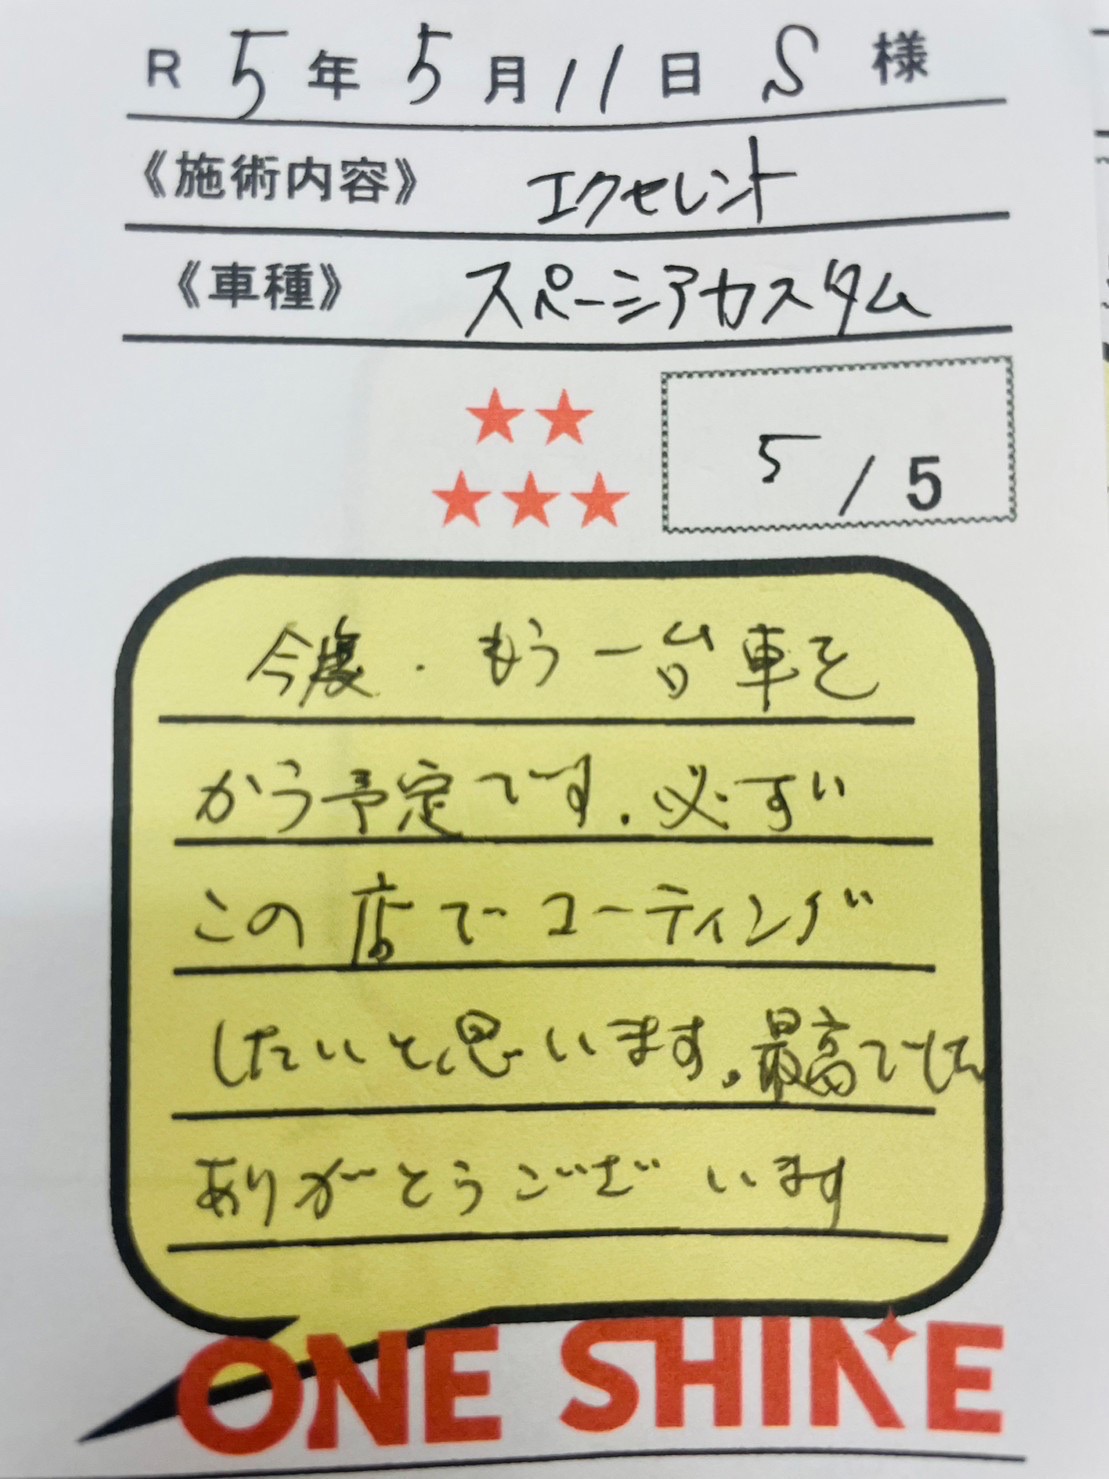 R 5年 5月 11日 S 様
《施術内容》 エクセレント
《車種》 スペーシアカスタム
5 / 5
今度.もう一台車を
かう予定です.必ず
この店でコーティング
したいと思います.最高でした
ありがとうございます
ONE SHINE